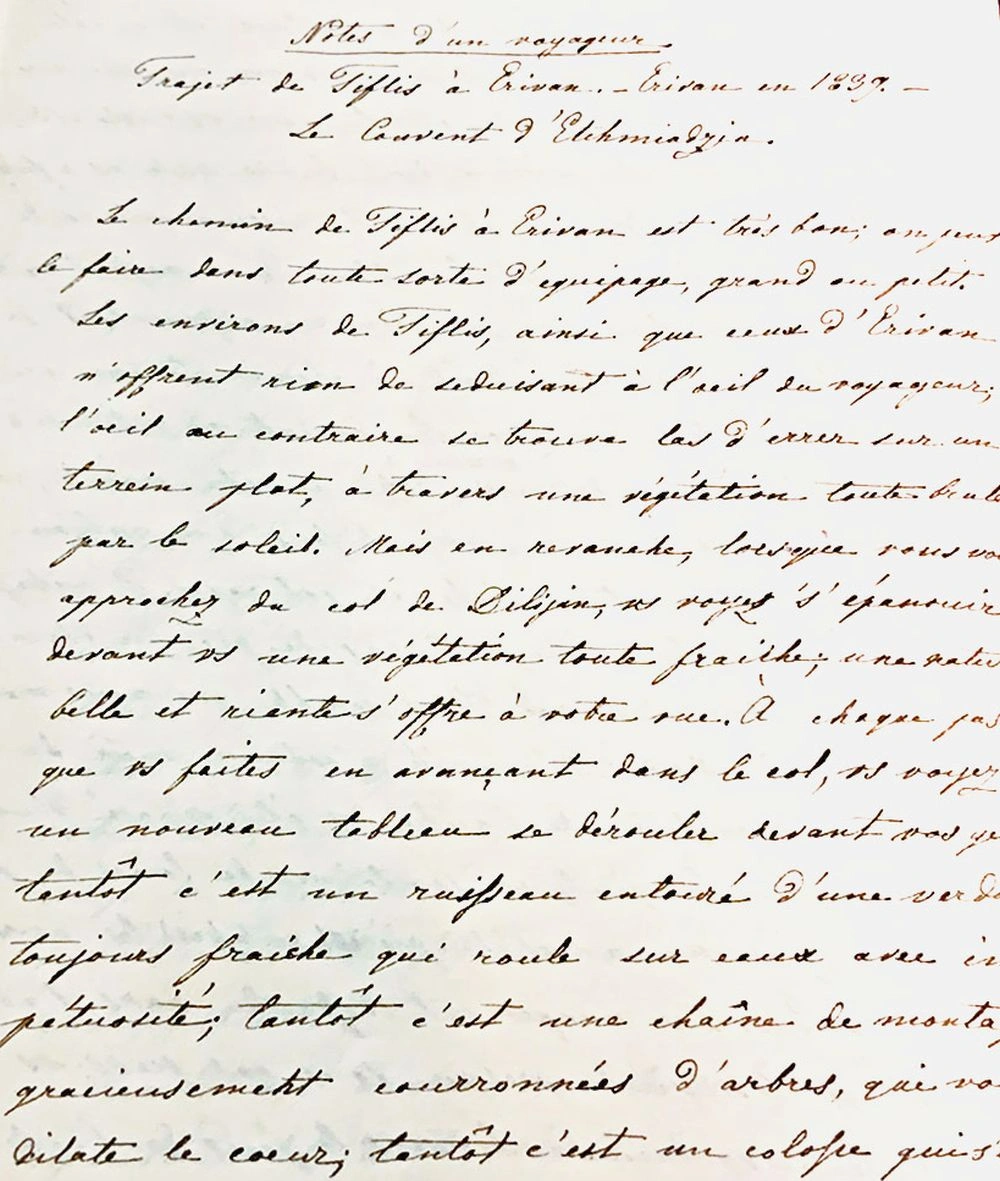 Notes d'un voyageur.
Trajet de Tiflis à Erivan. – Erivan en 1839. –
Le Couvent d'Etchmiadzin.
Le chemin de Tiflis à Erivan est très bon; on peut
le faire dans toute sorte d'equipage, grand ou petit.
Les environs de Tiflis, ainsi que ceux d'Erivan
n'offrent rien de seduisant à l'oeil du voyageur;
l'oeil au contraire se trouve las d'errer sur un
terrein plat, à travers une végétation toute brulé
par le soleil. Mais en revanche, lorsque vous vo
approchez du col de Dilijan, vs voyez s'épanouir
devant vs une végétation toute fraiche; une natu
belle et riante s'offre à votre vue. À chaque pas
que vs faites en avançant dans le col, vs voyez
un nouveau tableau se dérouler devant vos ye
tantôt c'est un ruisseau entouré d'une verdu
toujours fraiche qui roule sur eaux avec im
pétuosité; tantôt c'est une chaîne de monta
gracieusement courronnées d'arbres, qui vo
dilate le coeur; tantôt c'est un colosse qui s'